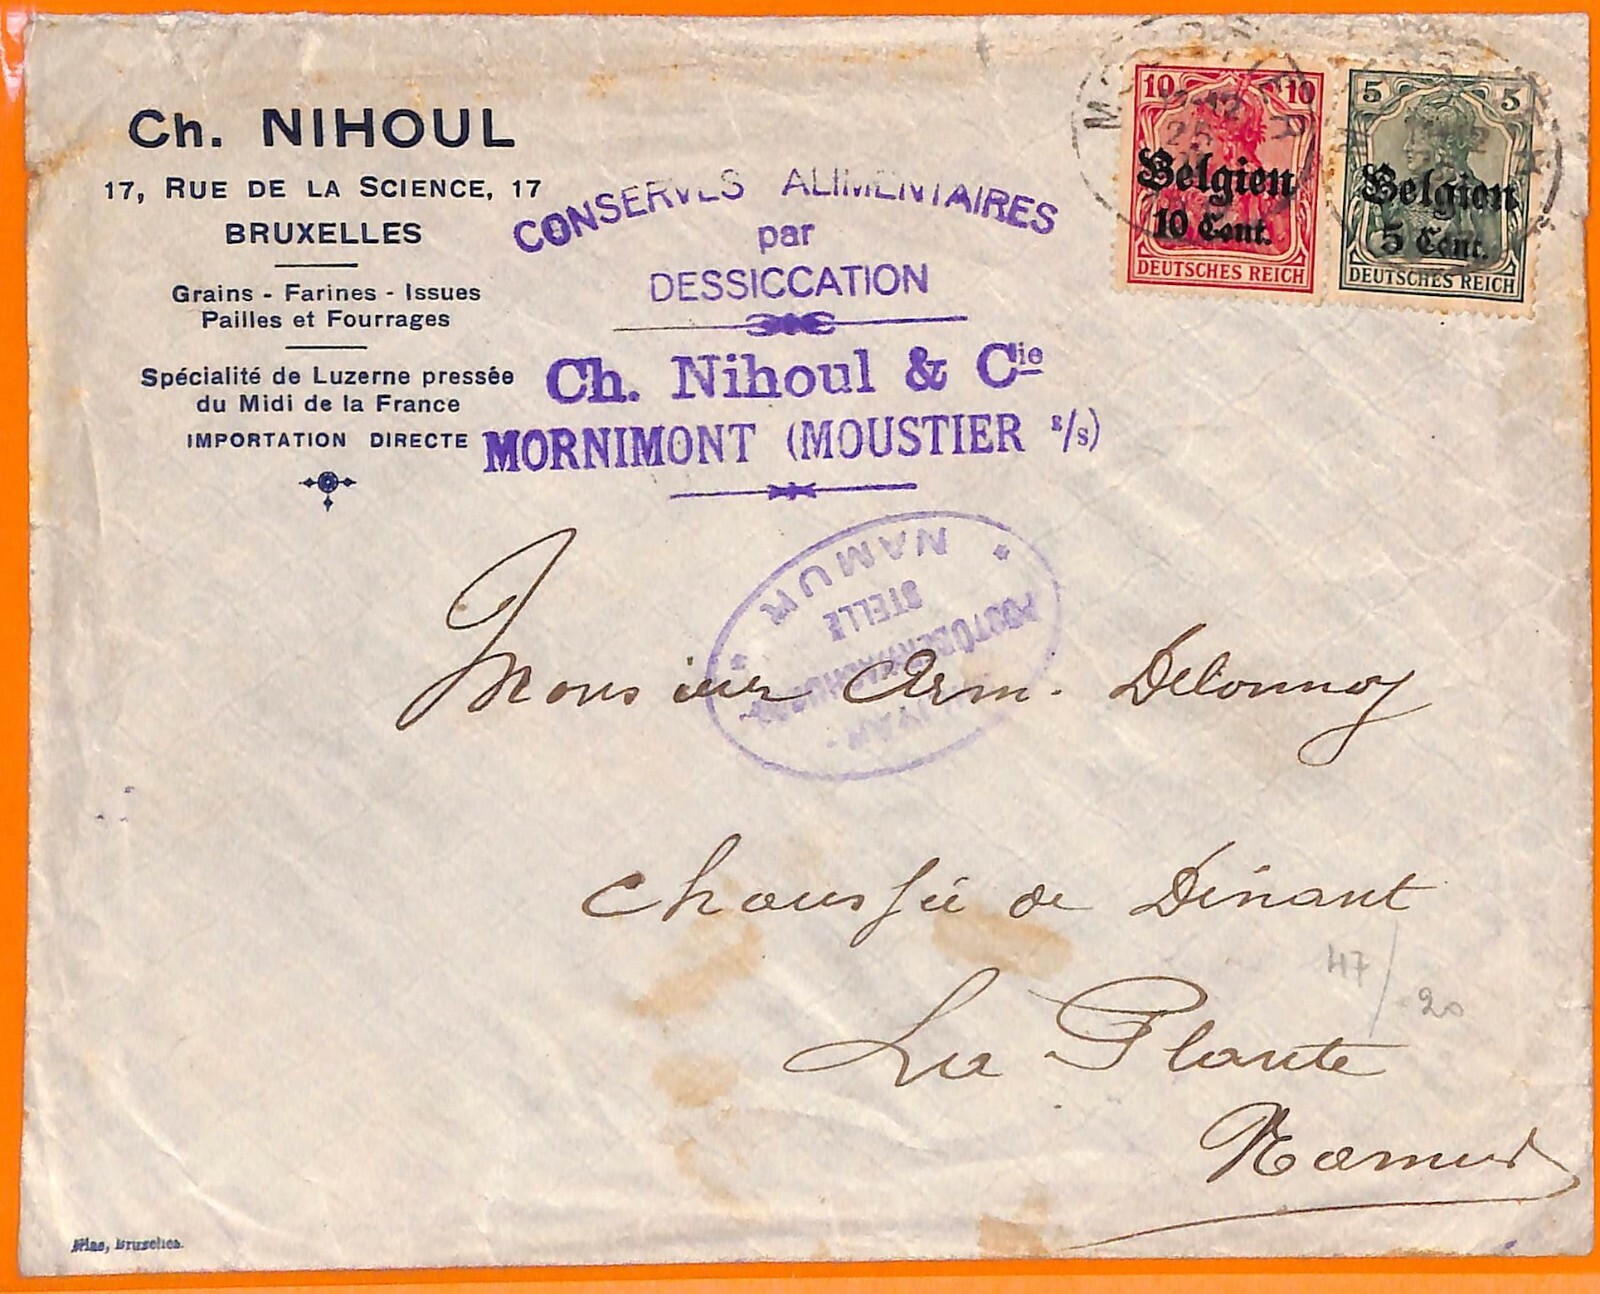 Ch. NIHOUL
17, RUE DE LA SCIENCE, 17
BRUXELLES
Grains - Farines - Issues
Pailles et Fourrages
Spécialité de Luzerne pressée
du Midi de la France
IMPORTATION DIRECTE
CONSERVES ALIMENTAIRES
par
DESSICCATION
Ch. Nihoul & Cie
MORNIMONT (MOUSTIER s/s)
10 10
Belgien
10 Cent.
DEUTSCHES REICH
5 5
Belgien
5 Cent.
DEUTSCHES REICH
POSTÜBERWACHUNGS-
STELLE
* NAMUR *
Monsieur Arm. Delonnoy
Chaussée de Dinant
La Plante
Namur
47/20
Bruxelles.